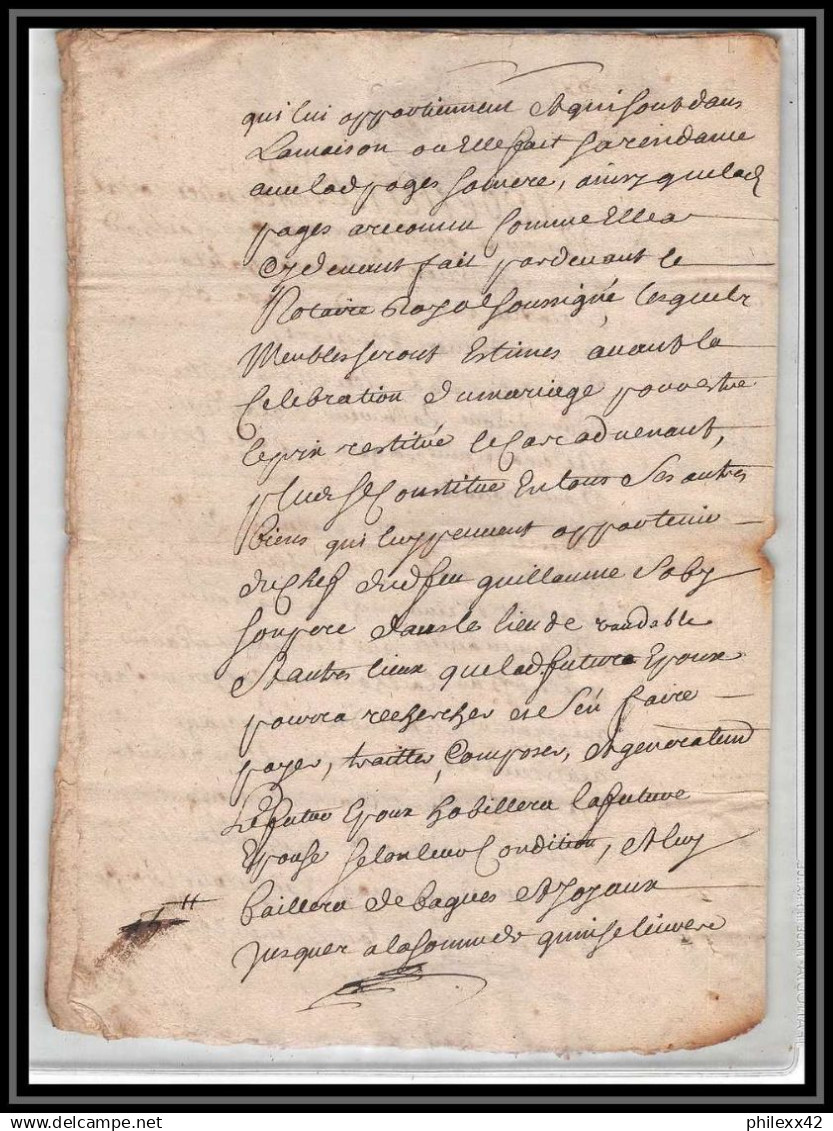 qui lui appartiennent et qui sont dans
La maison ou Elle fait sa residance
avec lad pages sa mere, ainsy que lad
pages a reconnu comme Elle a
cy devant fait pardevant le
Notaire Royal soussigné, lesquels
Meubles seront Estimés avant la
Celebration du mariage pour estre
le prix restitué le cas advenant,
plus se Constitue En tous ses autres
biens qui luy peuvent appartenir
du Chef dud feu guillaume
son pere dans le lieu de vandable
et autres lieux que lad future Epouse
pourra rechercher et s'en faire
payer, traitter, composer, et generalemt
Le futur Epoux habillera la future
Epouse selon leur Condition, et luy
baillera de bagues et Joyaux
Jusques a la somme de quinse livres
www.delcampe.net
philexx42